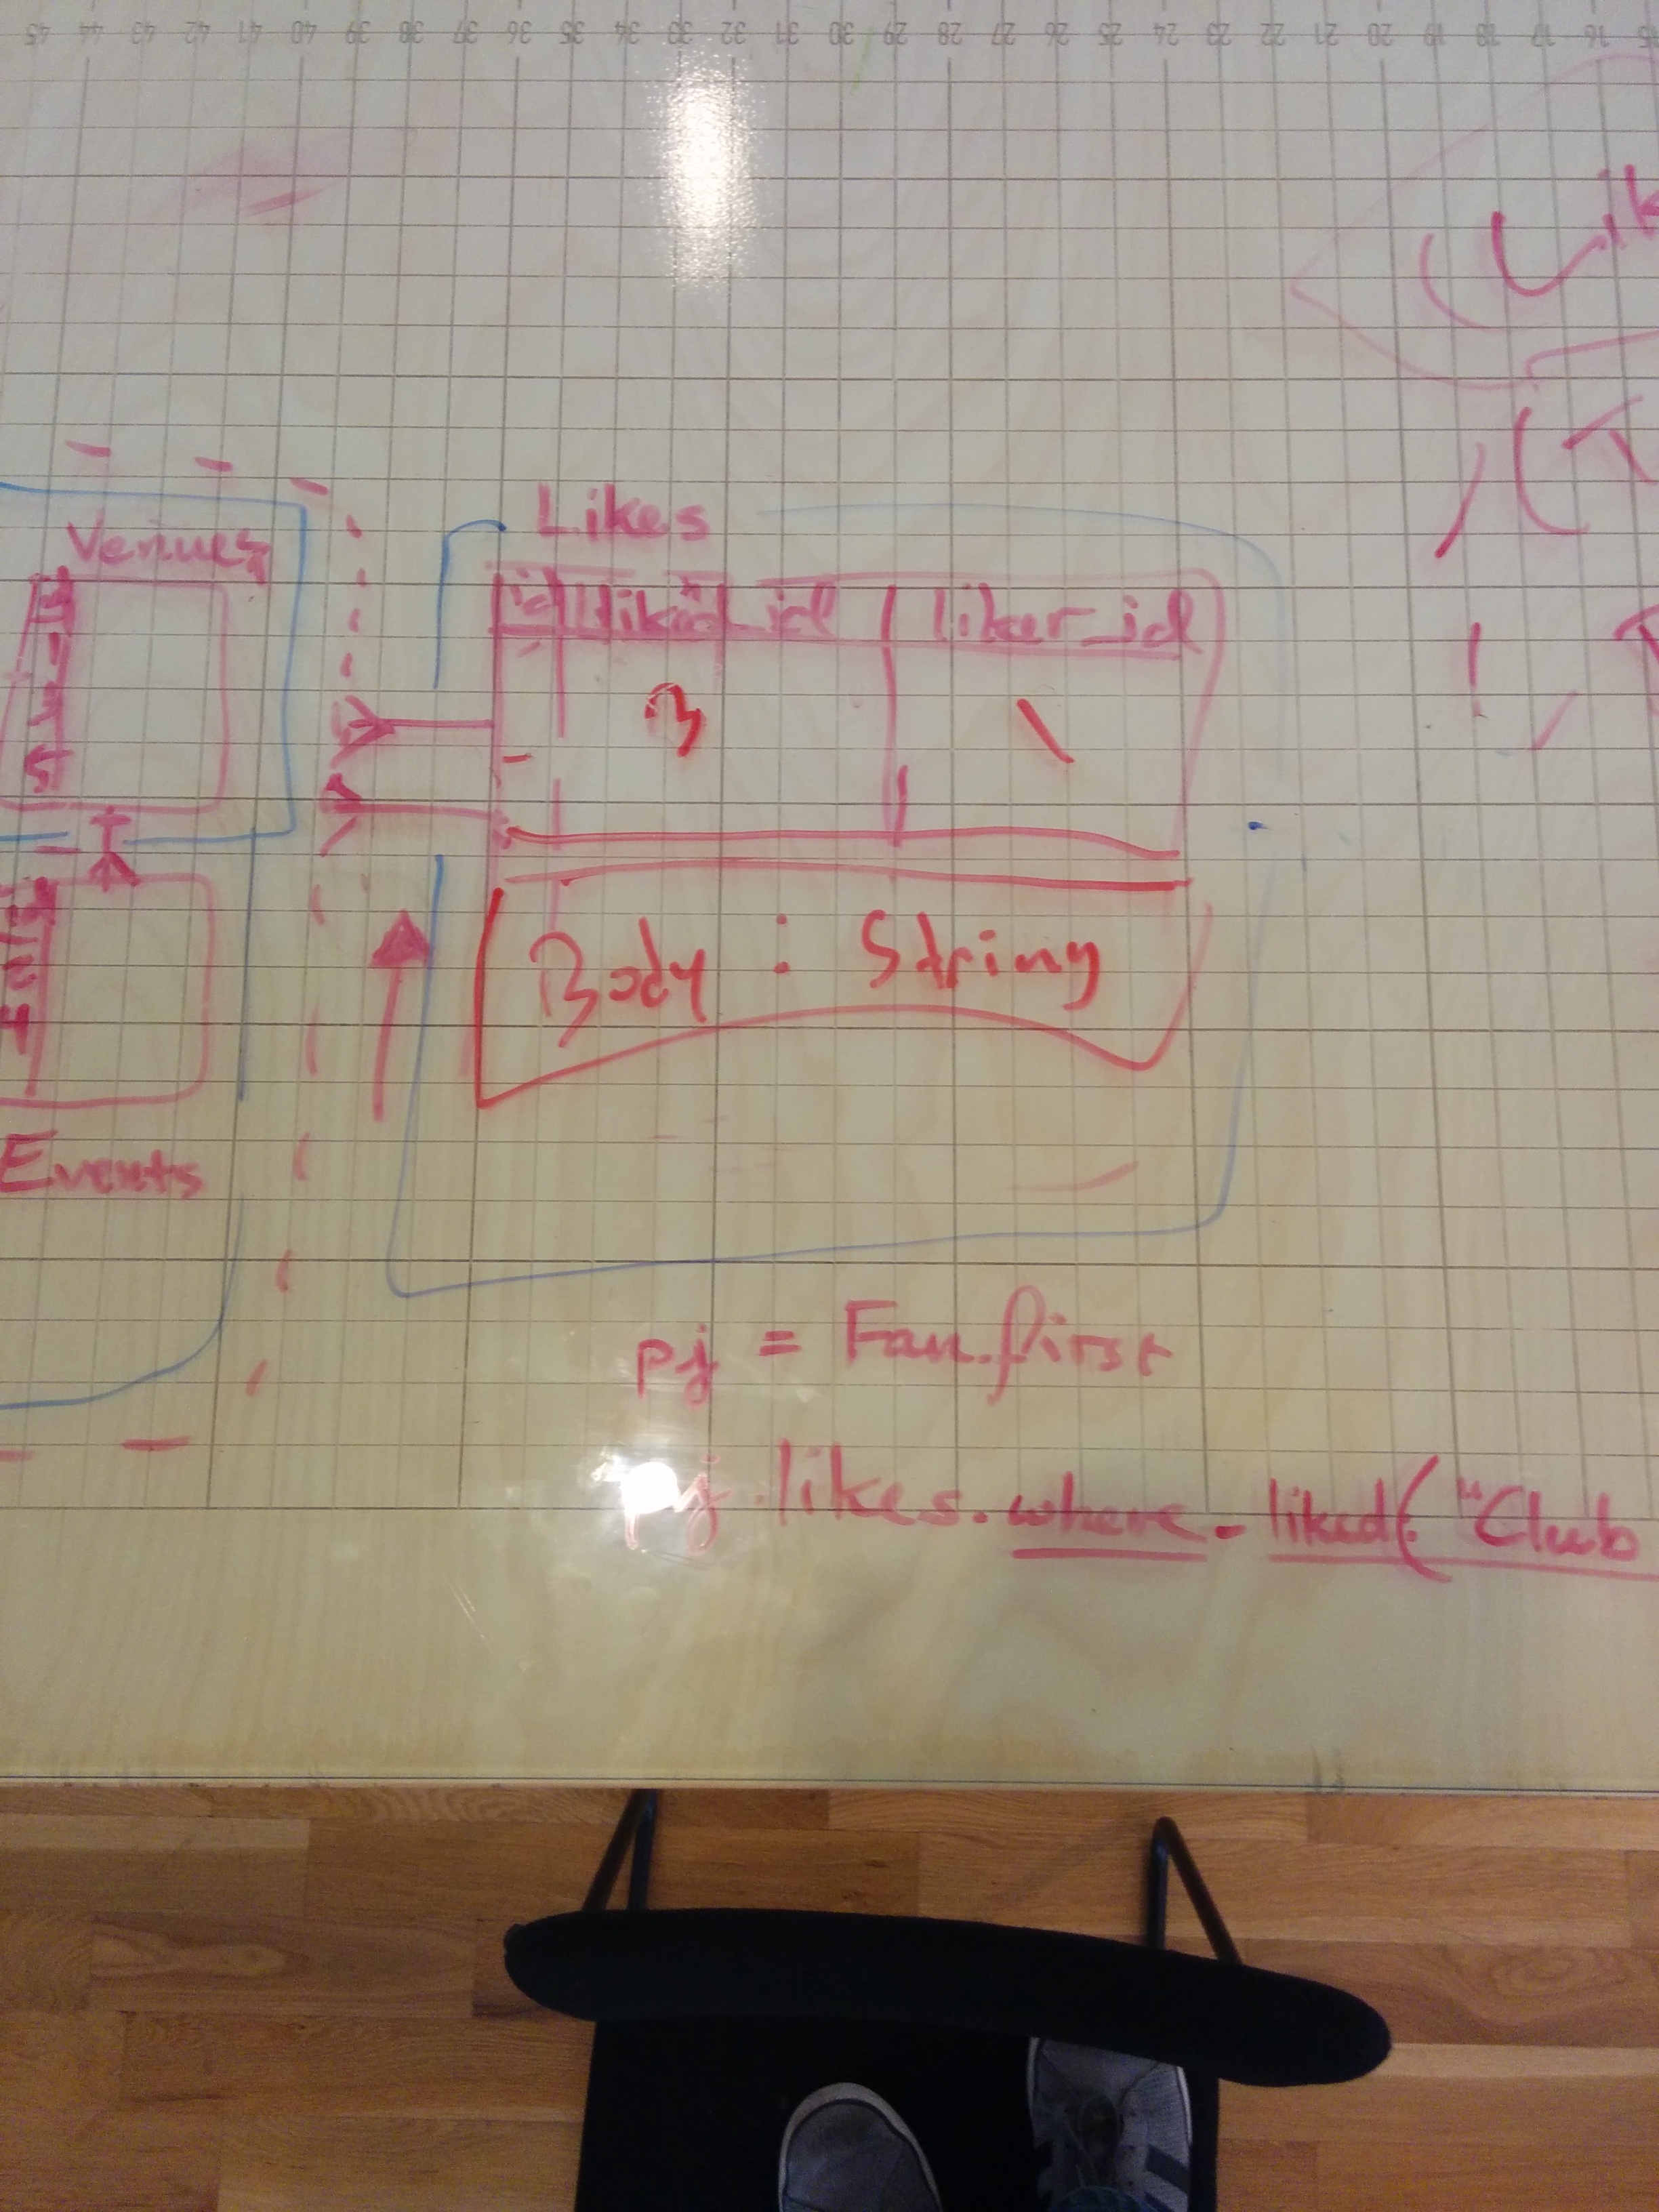 45 44 43 42 41 40 39 38 37 36 35 34 33 32 31 30 29 28 27 26 25 24 23 22 21 20 19 18 17 16 15
(Lik
(T
Likes
Venues
id liked_id liker_id
3 1
5
Body : String
4
Events
pj = Fan.first
pj.likes.where_liked("Club